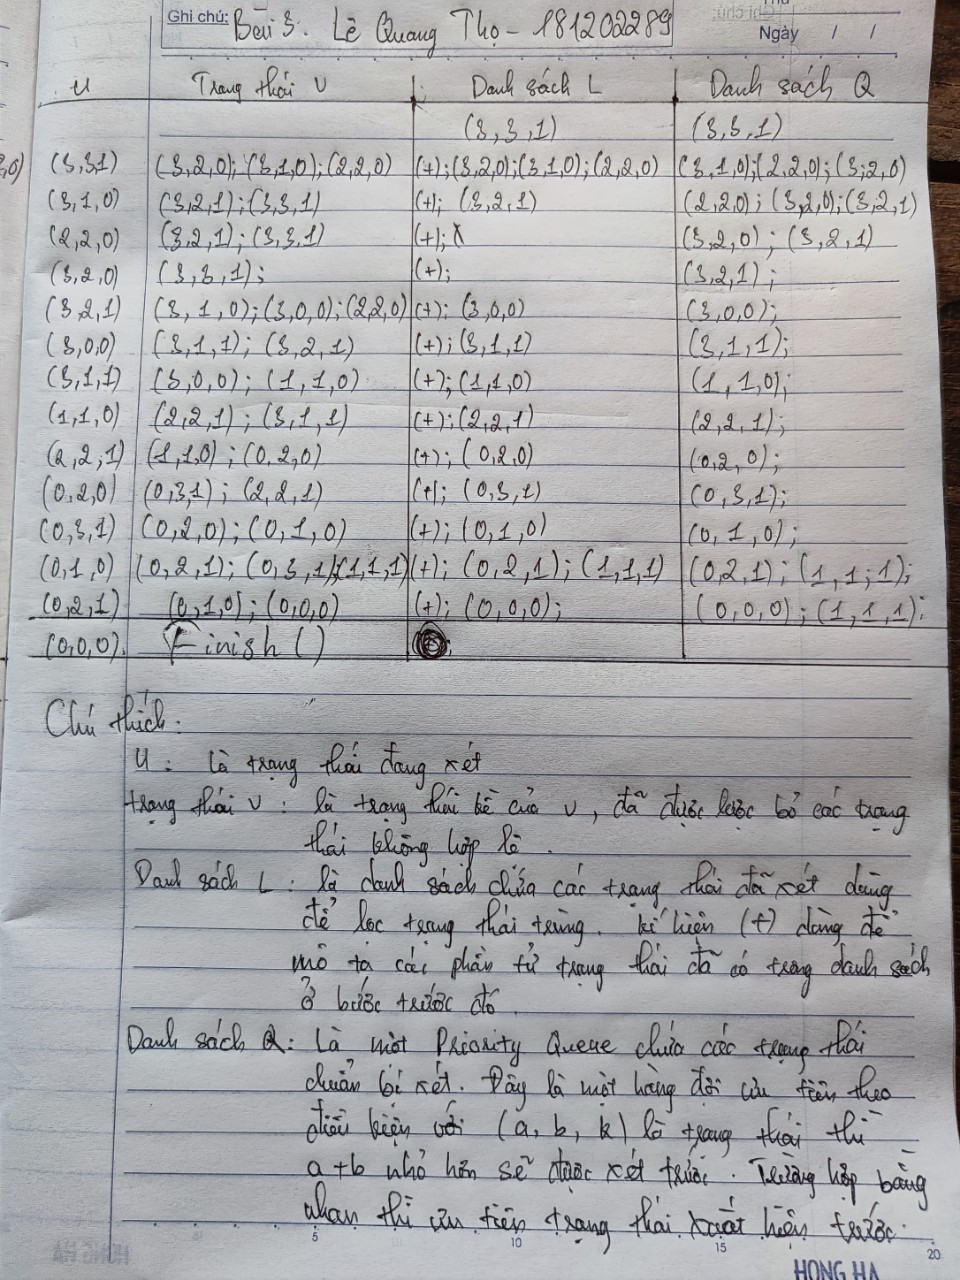 Ghi chú: Bài 3. Lê Quang Thọ - 181202289
Ngày / /
U Trạng thái V Danh sách L Danh sách Q
(3,3,1) (3,3,1)
(3,3,1) (3,2,0); (3,1,0); (2,2,0) (+); (3,2,0); (3,1,0); (2,2,0) (3,1,0); (2,2,0); (3,2,0)
(3,1,0) (3,2,1); (3,3,1) (+); (3,2,1) (2,2,0); (3,2,0); (3,2,1)
(2,2,0) (3,2,1); (3,3,1) (+); (3,2,0); (3,2,1)
(3,2,0) (3,3,1); (+); (3,2,1);
(3,2,1) (3,1,0); (3,0,0); (2,2,0) (+); (3,0,0) (3,0,0);
(3,0,0) (3,1,1); (3,2,1) (+); (3,1,1) (3,1,1);
(3,1,1) (3,0,0); (1,1,0) (+); (1,1,0) (1,1,0);
(1,1,0) (2,2,1); (3,1,1) (+); (2,2,1) (2,2,1);
(2,2,1) (1,1,0); (0,2,0) (+); (0,2,0) (0,2,0);
(0,2,0) (0,3,1); (2,2,1) (+); (0,3,1) (0,3,1);
(0,3,1) (0,2,0); (0,1,0) (+); (0,1,0) (0,1,0);
(0,1,0) (0,2,1); (0,3,1); (1,1,1) (+); (0,2,1); (1,1,1) (0,2,1); (1,1,1);
(0,2,1) (0,1,0); (0,0,0) (+); (0,0,0); (0,0,0); (1,1,1);
(0,0,0). Finish()
Chú thích:
U: là trạng thái đang xét
trạng thái V: là trạng thái kề của U, đã được lược bỏ các trạng
thái không hợp lệ.
Danh sách L: là danh sách chứa các trạng thái đã xét dùng
để lọc trạng thái trùng. kí hiệu (+) dùng để
mô tả các phần tử trạng thái đã có trong danh sách
ở bước trước đó.
Danh sách Q: Là một Priority Queue chứa các trạng thái
chuẩn bị xét. Đây là một hàng đợi ưu tiên theo
điều kiện với (a, b, k) là trạng thái thì
a+b nhỏ hơn sẽ được xét trước. Trường hợp bằng
nhau thì ưu tiên trạng thái xuất hiện trước.
5 10 15 20
HONG HA